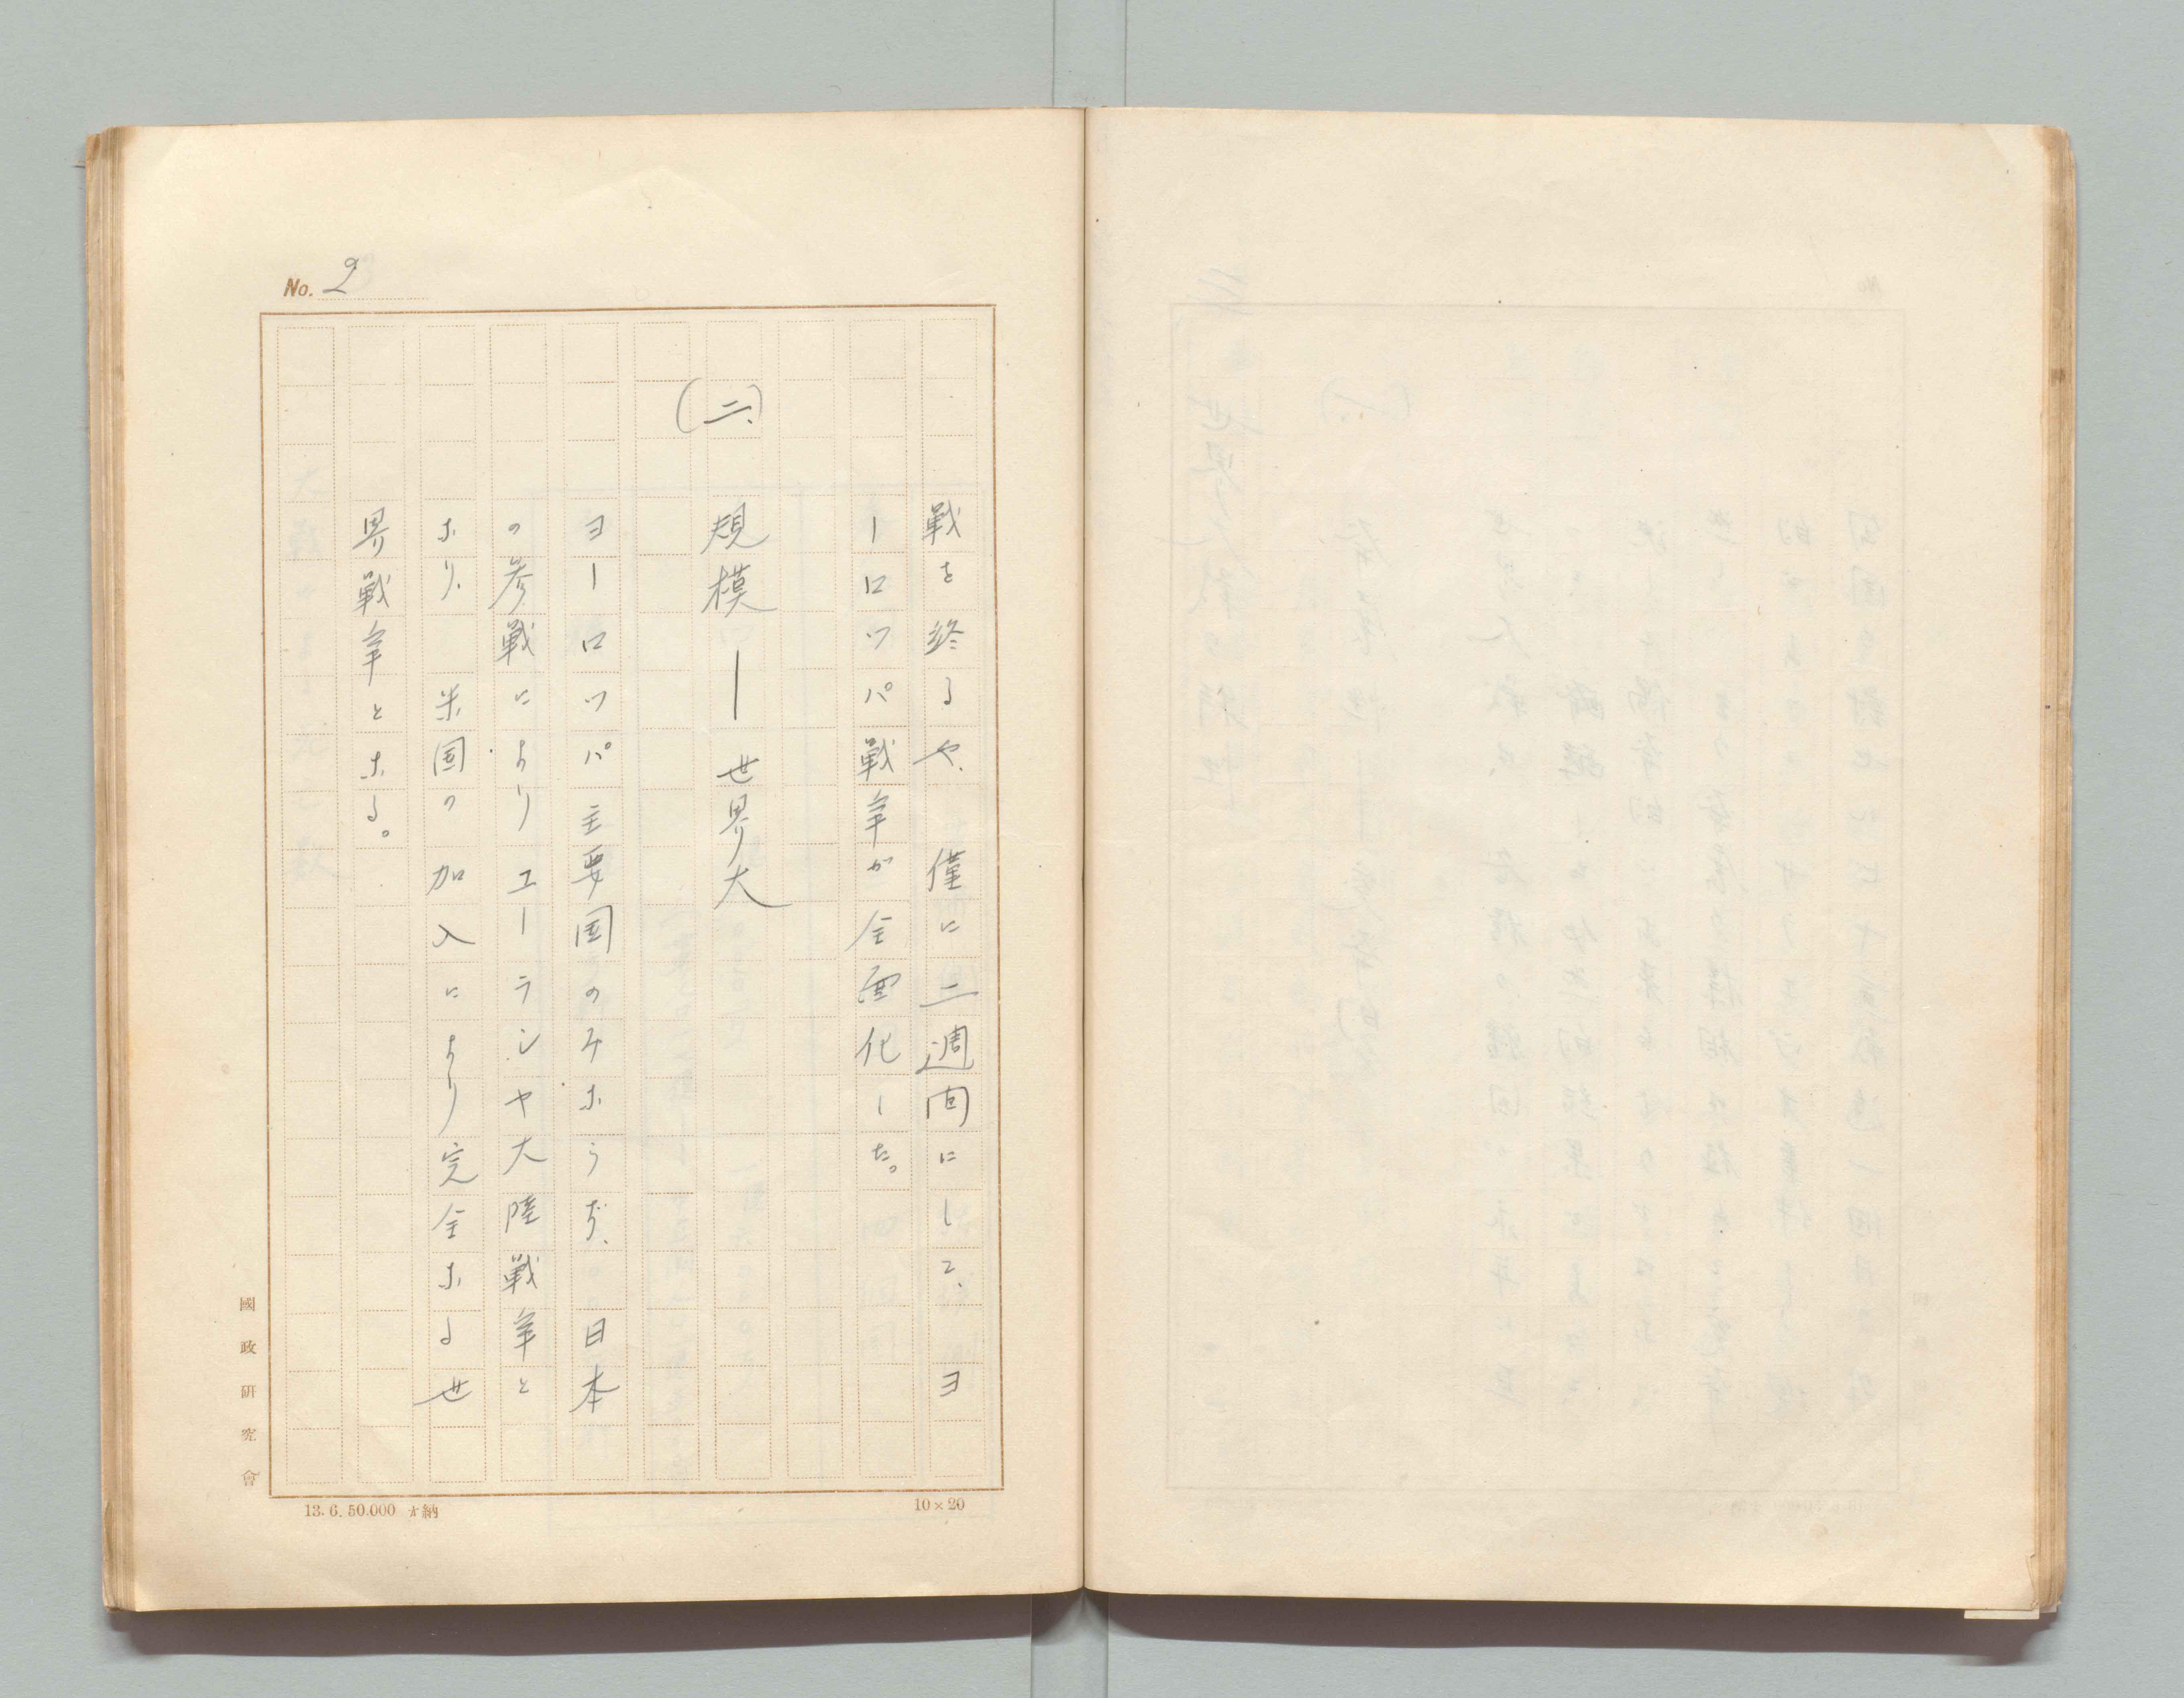 No. 2
戦を終るや、僅に二週间にして、ヨ
ーロッパ戦争が全面化した。
(二、)規模―世界大
ヨーロッパ主要国のみならず、日本
の参戦によりユーラシヤ大陸戦争と
なり、米国の加入により完全なる世
界戦争となる。
國政研究會
13.6.50.000 才納
10×20